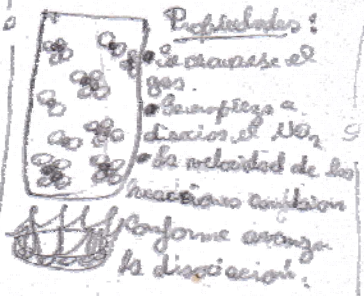 Propiedades:
• Se descompone el
gas.
• Se empieza a
disociar el NO₂
• La velocidad de las
reacciones cambian
conforme avanza
la disociación.